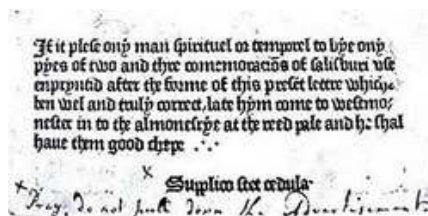 If it plese ony man spirituel or temporel to bye ony
pyes of two and thre comemoraciōs of salisburi vse
enpryntid after the forme of this preset lettre whiche
ben wel and truly correct, late hym come to westmo-
nester in to the almonesrye at the reed pale and he shal
haue them good chepe .·.
Supplico stet cedula
Pray, do not pull down the Advertisement